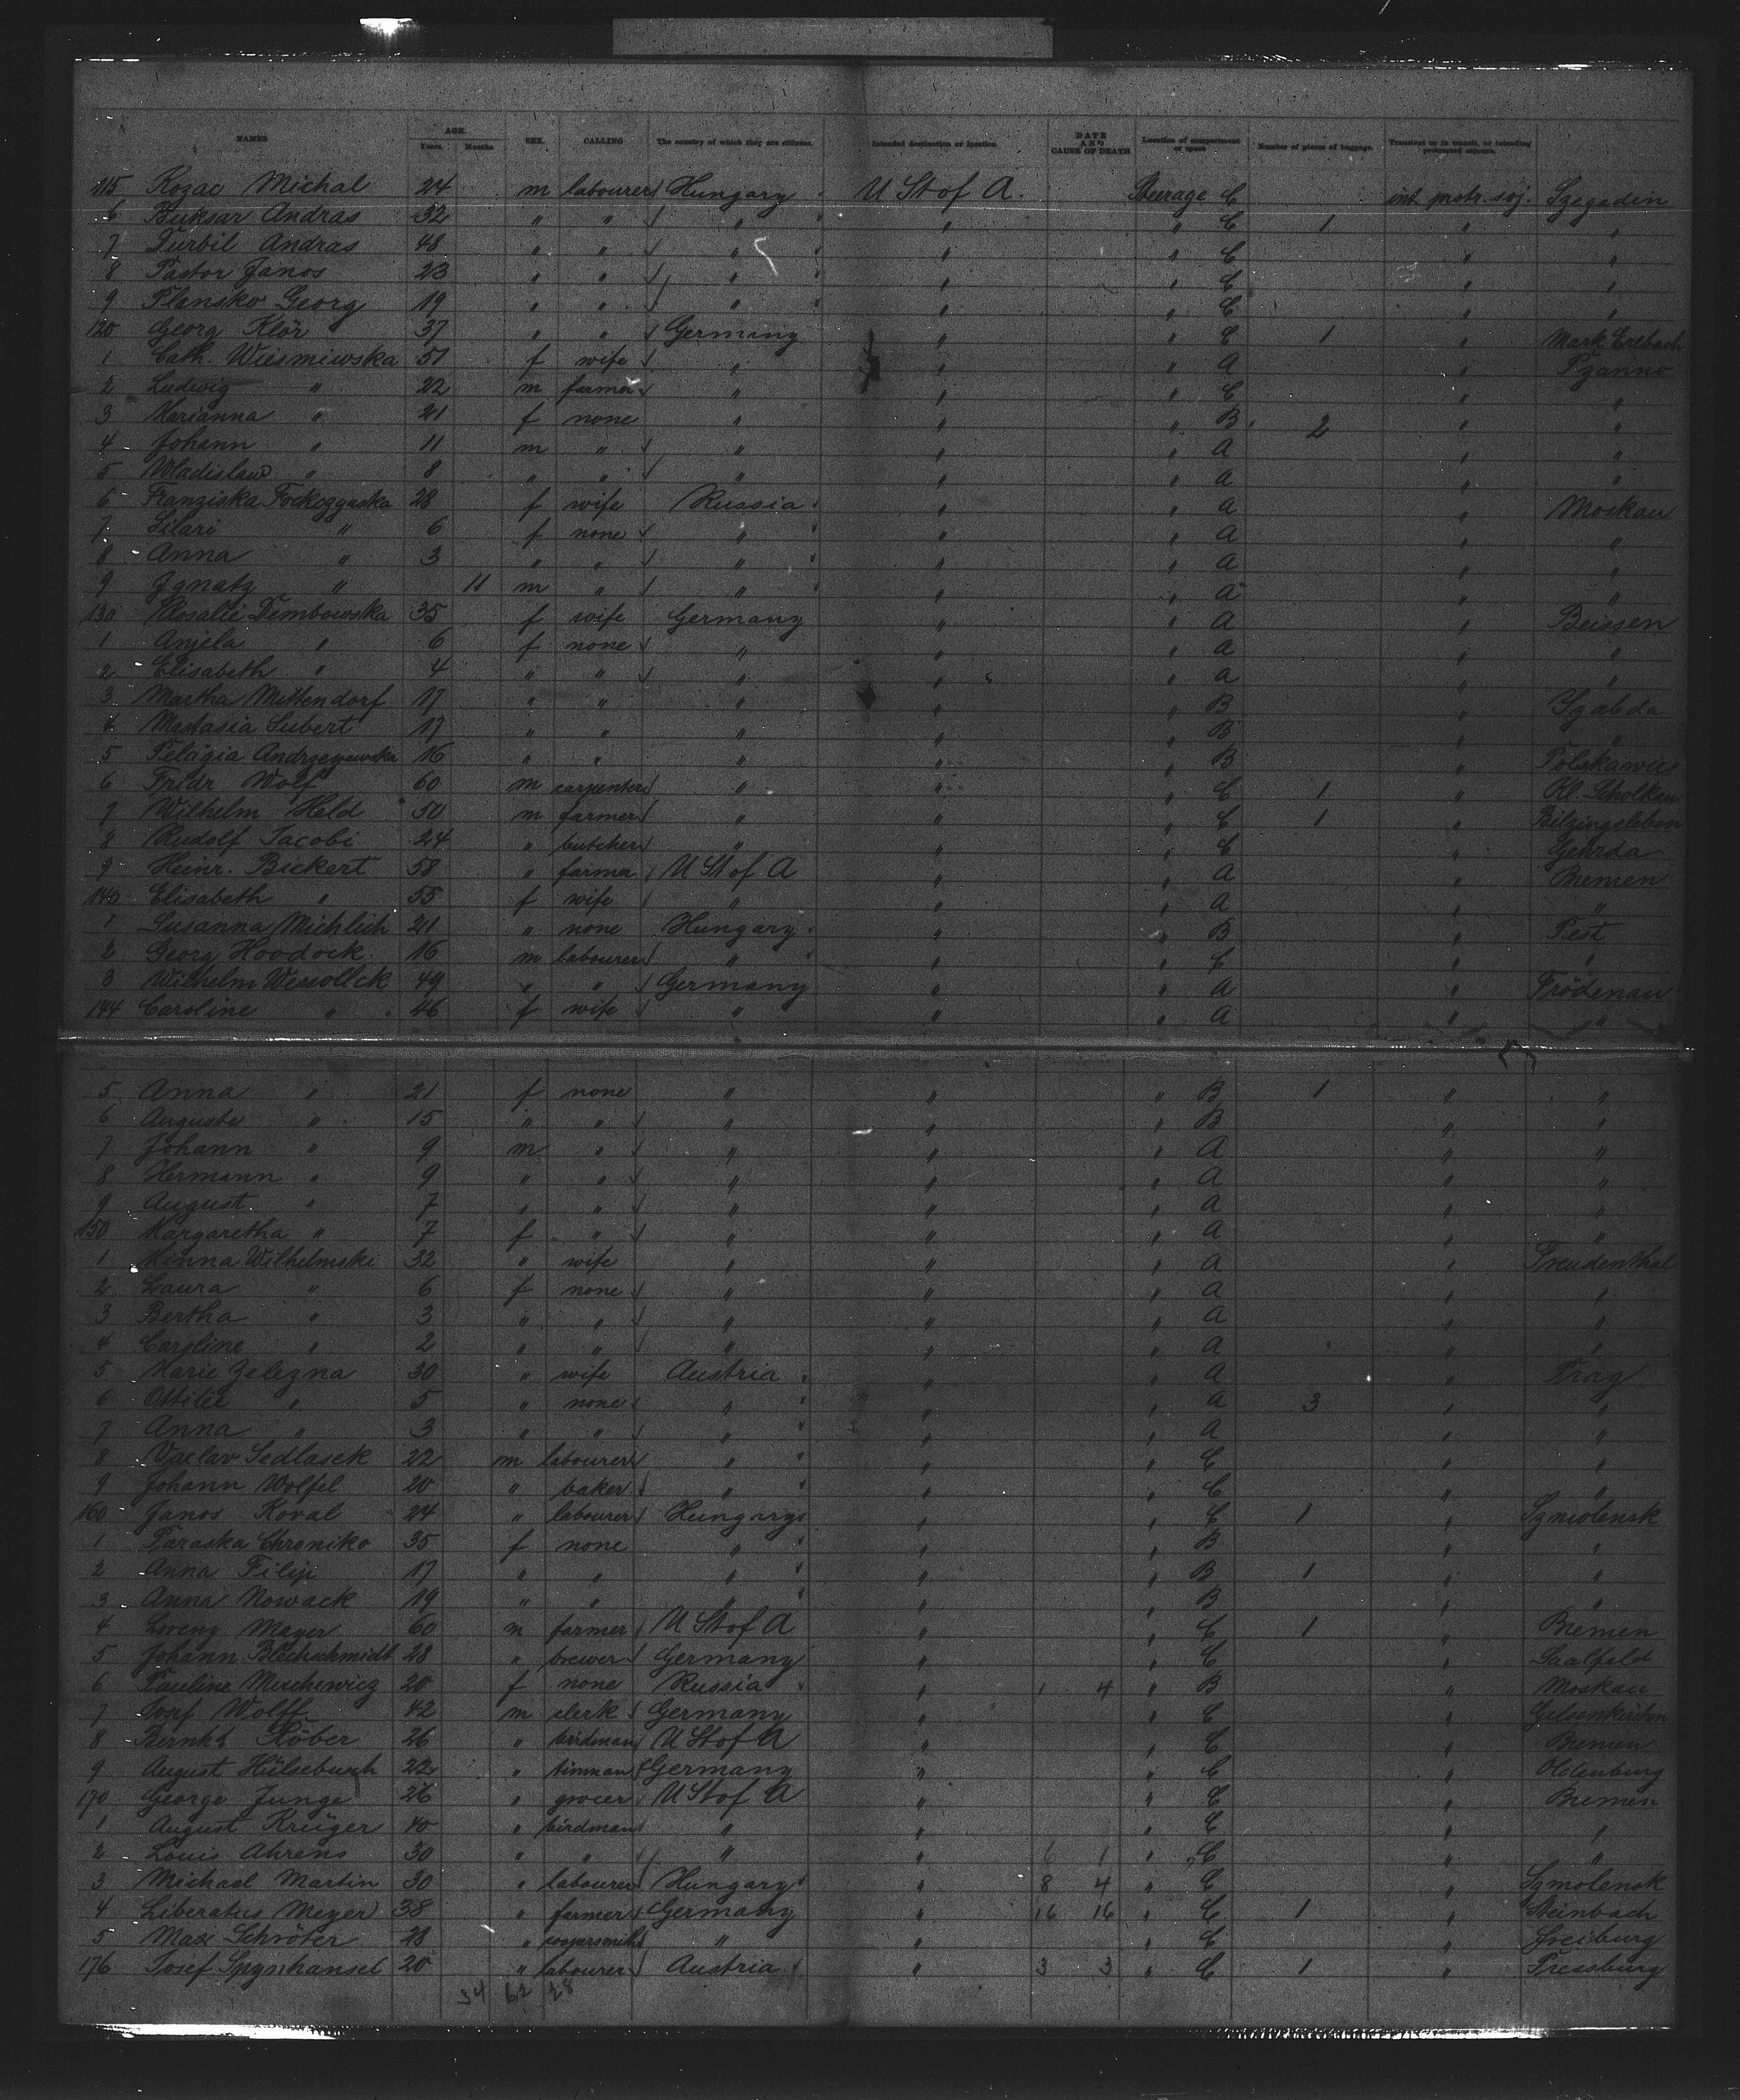 NAMES AGE. Years. Months. SEX. CALLING The country of which they are citizens. Intended destination or location. DATE AND CAUSE OF DEATH Location of compartment or space Number of pieces of baggage. Transient or in transit, or intending protracted sojourn.
115 Kozac Michal 24 m labourer Hungary U St of A. Steerage C int. protr. soj. Szegedin
6 Buksar Andras 32 " " " " " C 1 " "
7 Durbil Andras 48 " " " " " C " "
8 Pastor Janos 23 " " " " " C " "
9 Plansko Georg 19 " " " " " C " "
120 Georg Klör 37 " " Germany " " C 1 " Mark Erlbach
1 Cath. Wiesmiewska 51 f wife " " " A "
2 Ludwig " 22 m farmer " " " C " "
3 Marianna " 21 f none " " " B 2 " "
4 Johann " 11 m " " " " A " "
5 Wladislaw " 8 " " " " " A " "
6 Franziska 28 f wife Russia " " A " Moskau
7 Lilari " 6 f none " " " A " "
8 Anna " 3 " " " " " A " "
9 Ignatz " 11 m " " " " A " "
130 Rosalie Dembowska 35 f wife Germany " " A " Beissen
1 Anjela " 6 f none " " " A " "
2 Elisabeth " 4 " " " " " A " "
3 Martha Mittendorf 17 " " " " " B "
4 Subert 17 " " " " " B " "
5 Pelagia Andrzeyewska 16 " " " " " B "
6 Fridr Wolf 60 m carpenter " " " C 1 "
7 Wilhelm Held 50 m farmer " " " C 1 " Bilzingsleben
8 Rudolf Jacobi 24 " butcher " " " C " Gehrda
9 Heinr. Bickert 58 " farmer U St of A " " A " Bremen
140 Elisabeth " 55 f wife " " " A " "
1 Susanna Michlich 21 " none Hungary " " B " Pest
2 Georg Hoodock 16 m labourer " " " C " "
3 Wilhelm Wessollek 49 " " Germany " " A " Frödenau
144 Caroline " 46 f wife " " " A " "
5 Anna " 21 f none " " " B 1 " "
6 Auguste " 15 " " " " " B " "
7 Johann " 9 m " " " " A " "
8 Hermann " 9 " " " " " A " "
9 August " 7 " " " " " A " "
150 Margaretha " 7 f " " " " A " "
1 Minna Wilhelmski 32 " wife " " " A " Freudenthal
2 Laura " 6 f none " " " A " "
3 Bertha " 3 " " " " " A " "
4 Caroline " 2 " " " " " A " "
5 Marie Zelezna 30 " wife Austria " " A " Prag
6 Ottilie " 5 " none " " " A 3 " "
7 Anna " 3 " " " " " A " "
8 Vaclav Sedlasek 22 m labourer " " " C " "
9 Johann Wolfel 20 " baker " " " C " "
160 Janos Koval 24 " labourer Hungary " " C 1 " Szmolensk
1 Paraska Chroniko 35 f none " " " B " "
2 Anna Filip 17 " " " " " B 1 " "
3 Anna Nowack 19 " " " " " B " "
4 Lorenz Mayer 60 m farmer U St of A " " C 1 " Bremen
5 Johann Blechschmidt 28 " brewer Germany " " C " Saalfeld
6 Pauline Muschewicz 20 f none Russia " 1 4 " B " Moskau
7 Josef Wolff 42 m clerk Germany " " C " Gelsenkirchen
8 Bernhd Röber 26 " birdman U St of A " " C " Bremen
9 August Hülsebusch 22 " tinman Germany " " C " Oldenburg
170 George Junge 26 " grocer U St of A " " C " Bremen
1 August Krüger 40 " birdman " " " C " "
2 Louis Ahrens 30 " " " " 6 1 " C " "
3 Michael Martin 30 " labourer Hungary " 8 4 " C " Szmolensk
4 Liberatus Meyer 38 " farmer Germany " 16 16 " C 1 " Steinbach
5 Max Schröter 28 " " " " C " Freiburg
176 Josef Spynhansel 20 " labourer Austria " 3 3 " C 1 " Pressburg
34 62 28